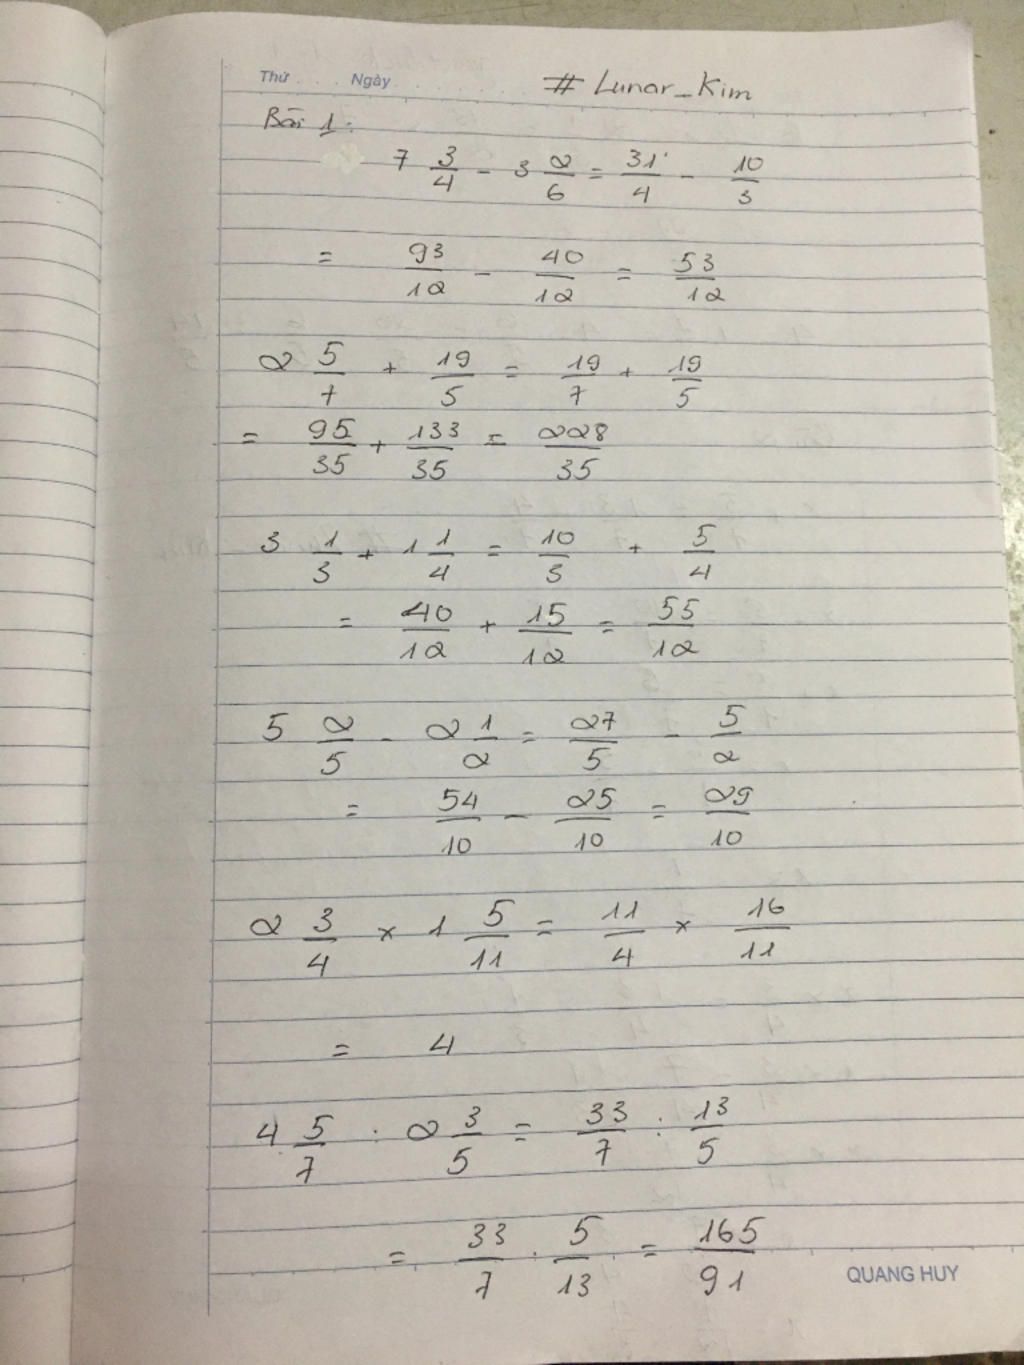 Thứ . . . . Ngày . . . . . . . . # Lunar_Kim
Bài 1:
7 3/4 - 3 2/6 = 31/4 - 10/3
= 93/12 - 40/12 = 53/12
2 5/7 + 19/5 = 19/7 + 19/5
= 95/35 + 133/35 = 228/35
3 1/3 + 1 1/4 = 10/3 + 5/4
= 40/12 + 15/12 = 55/12
5 2/5 - 2 1/2 = 27/5 - 5/2
= 54/10 - 25/10 = 29/10
2 3/4 × 1 5/11 = 11/4 × 16/11
= 4
4 5/7 : 2 3/5 = 33/7 : 13/5
= 33/7 . 5/13 = 165/91
QUANG HUY